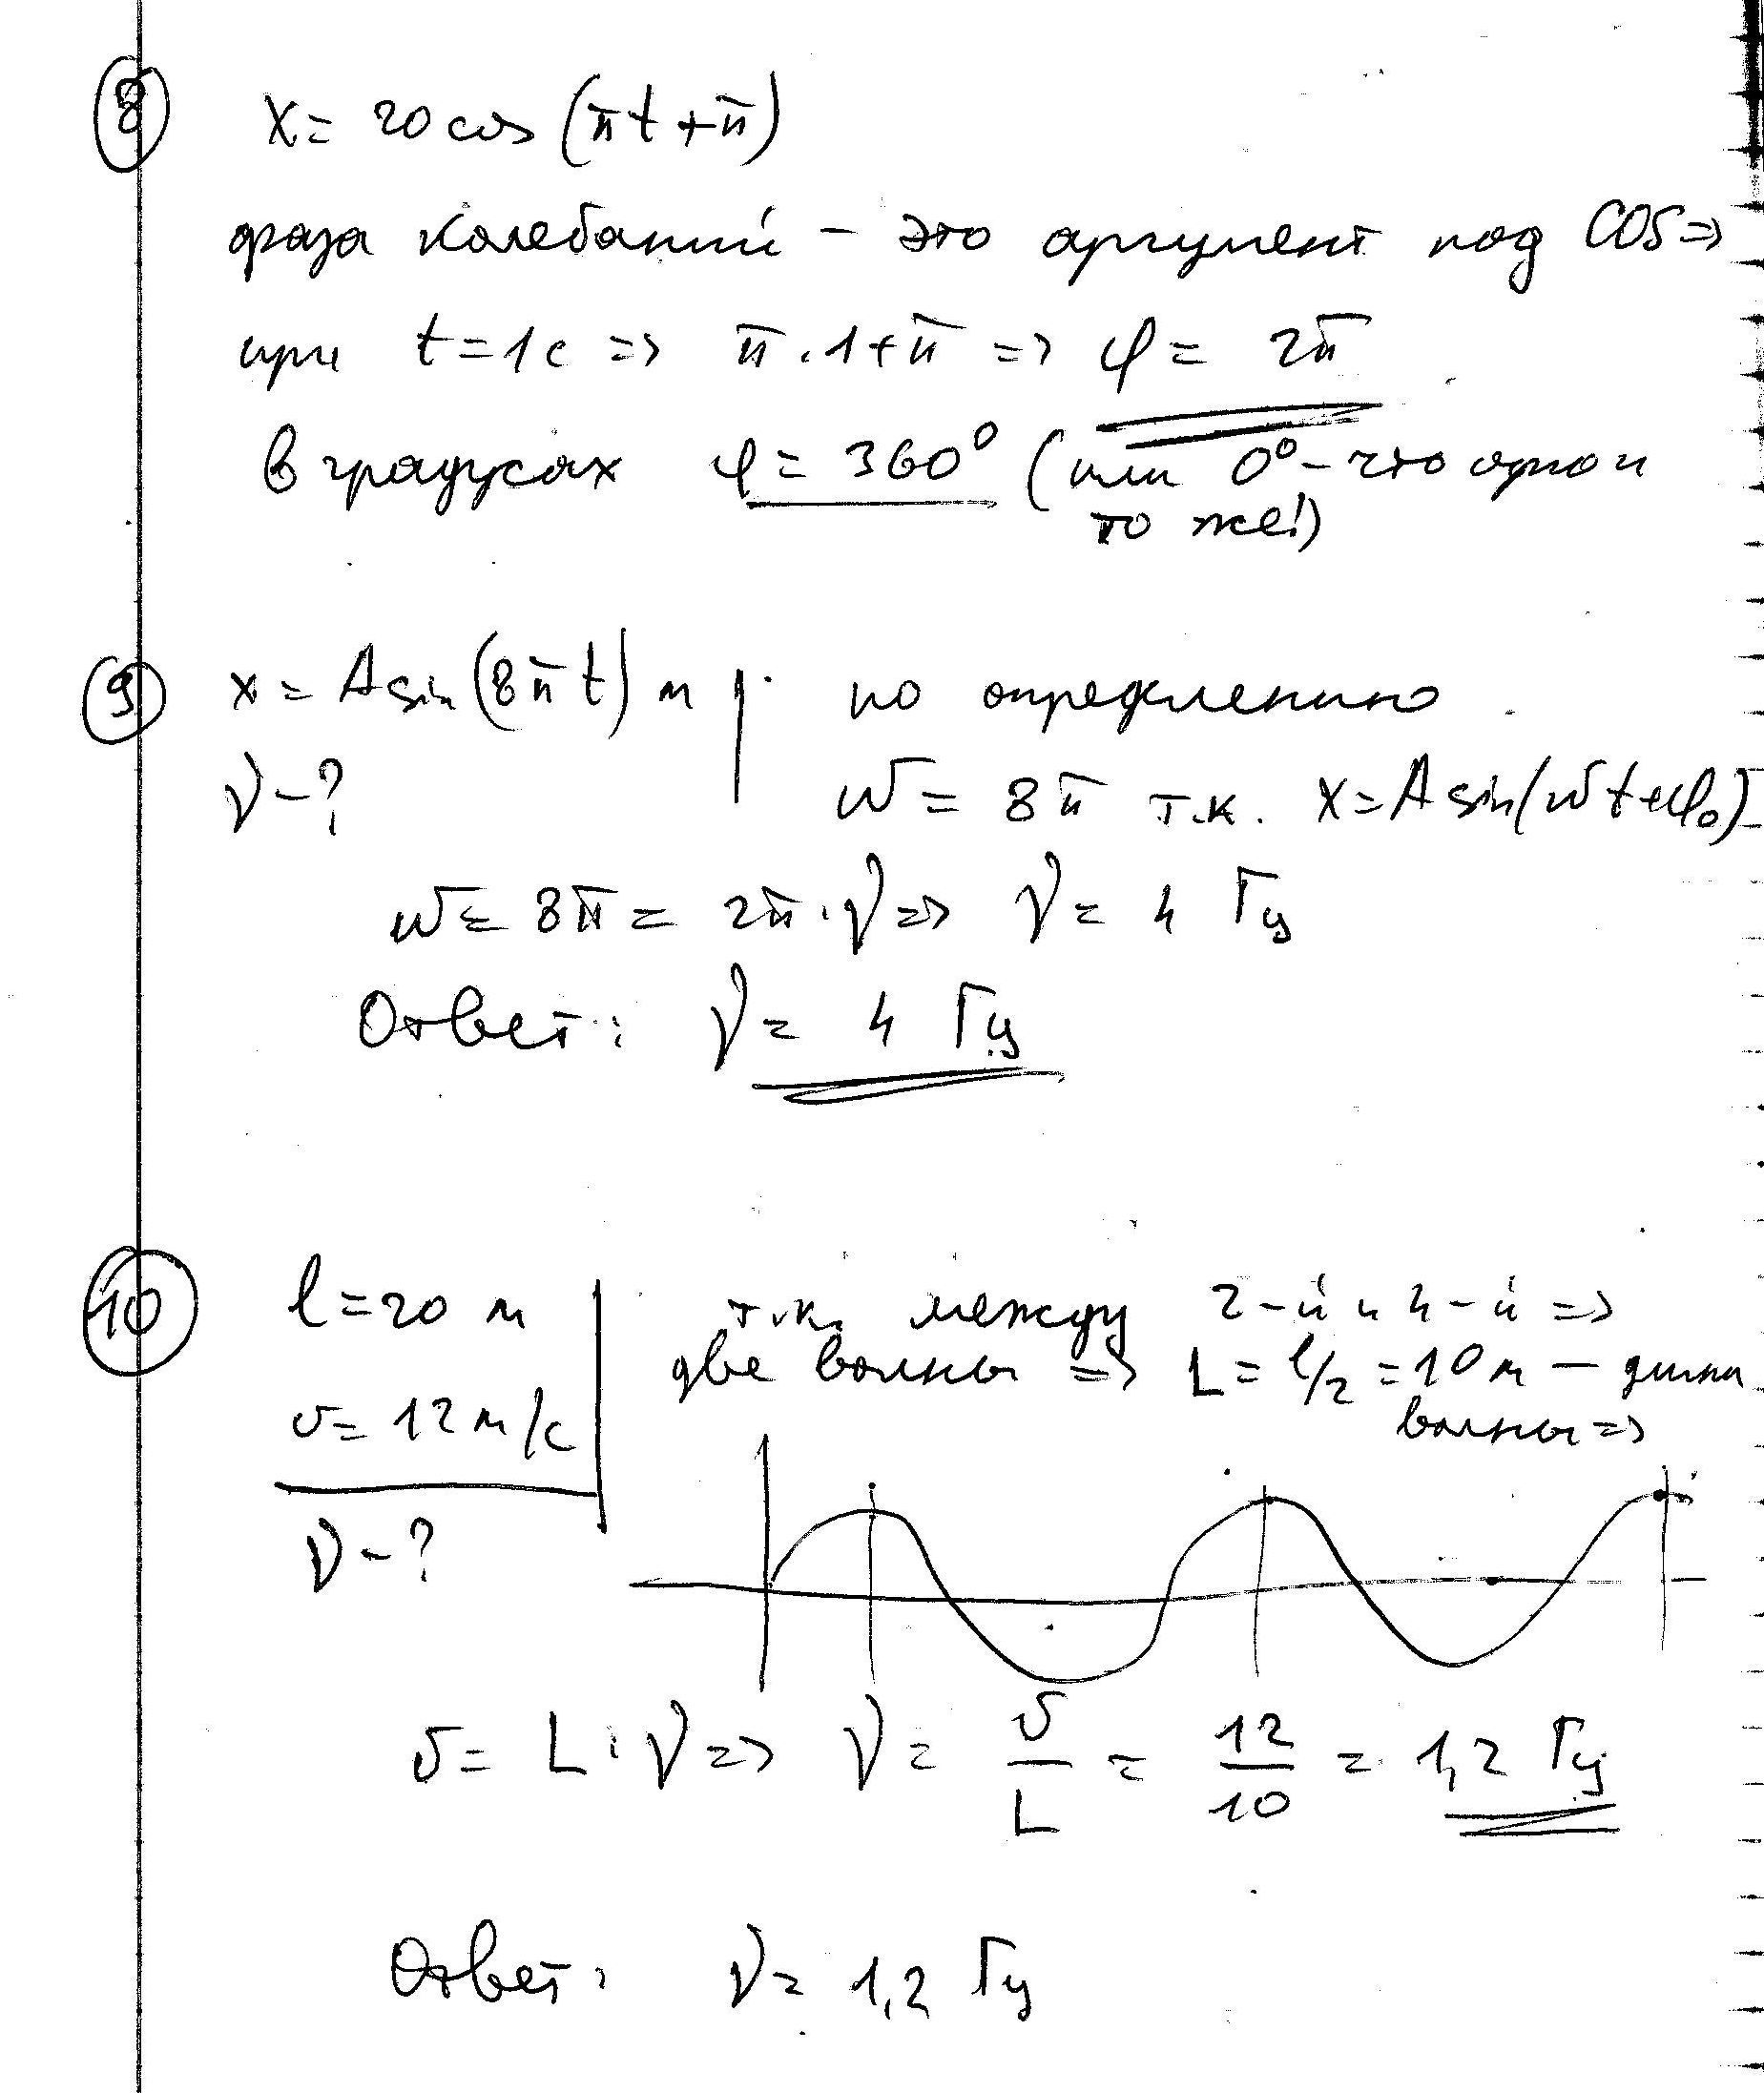 8 x = 20 cos (πt + π)
фаза колебаний – это аргумент под COS =>
при t = 1 c => π · 1 + π => φ = 2π
в градусах φ = 360° (или 0° – что одно и
то же!)
9 x = A sin (8πt) м по определению
ν – ?
ω = 8π т.к. x = A sin(ωt + φ₀)
ω = 8π = 2π · ν => ν = 4 Гц
Ответ: ν = 4 Гц
10 l = 20 м т.к. между 2-й и 4-й =>
две волны => L = l/2 = 10 м — длина
волны =>
v = 12 м/с
ν – ?
v = L · ν => ν = v/L = 12/10 = 1,2 Гц
Ответ: ν = 1,2 Гц